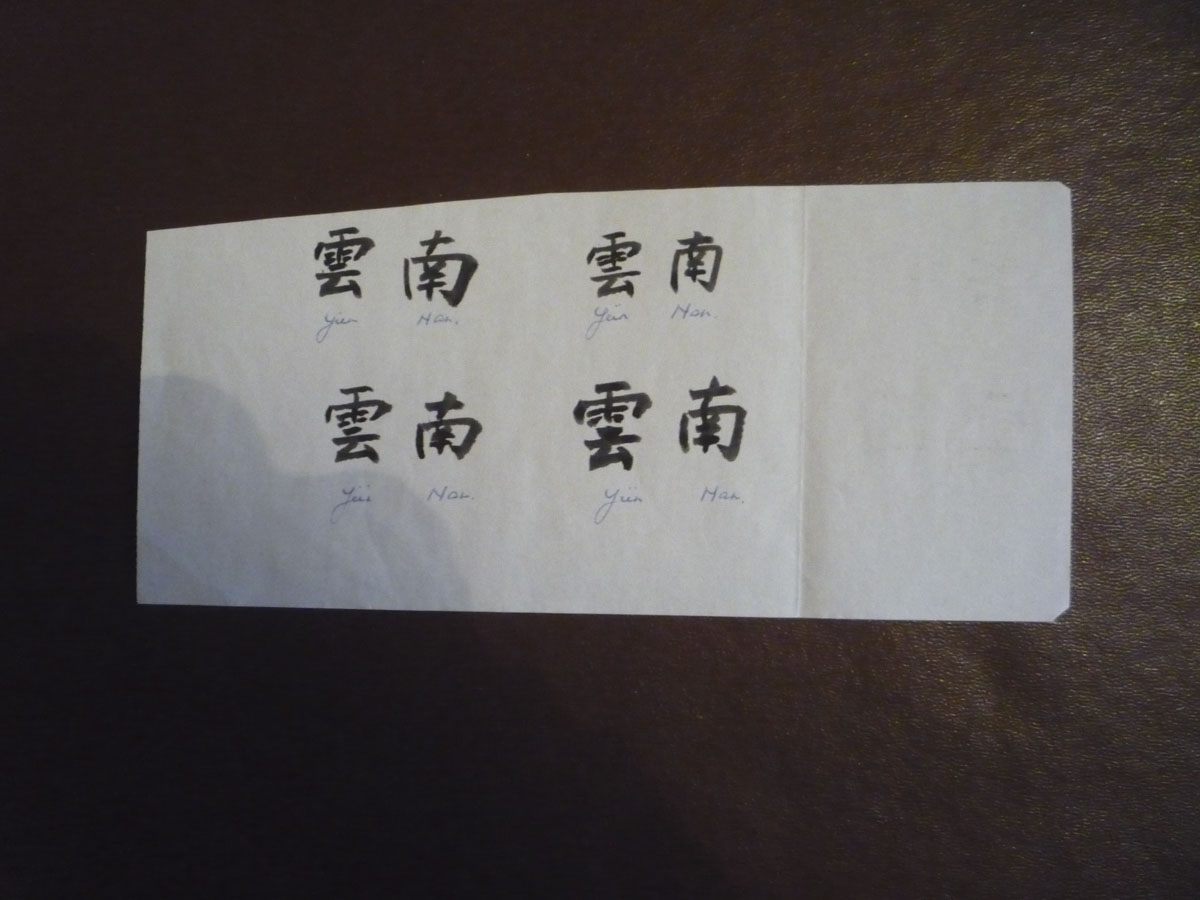 雲 南 雲 南
Yün Nan. Yün Nan.
雲 南 雲 南
Yün Nan. Yün Nan.